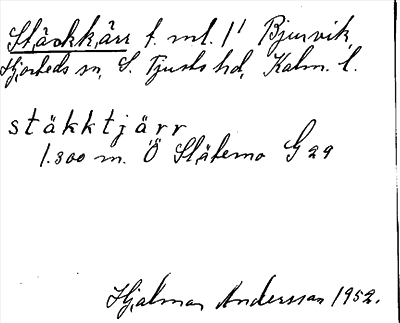 Stäckkärr f. ml. l1 Bjurvik,
Hjorteds sn, S. Tjusts hd, Kalm. l.
stäkktjärr
1.300 m. Ö Slätemo G 29
Hjalmar Andersson 1952.